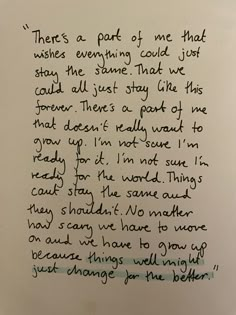 "There's a part of me that
wishes everything could just
stay the same. That we
could all just stay like this
forever. There's a part of me
that doesn't really want to
grow up. I'm not sure I'm
ready for it. I'm not sure I'm
ready for the world. Things
can't stay the same and
they shouldn't. No matter
how scary we have to move
on and we have to grow up
because things well might
just change for the better."